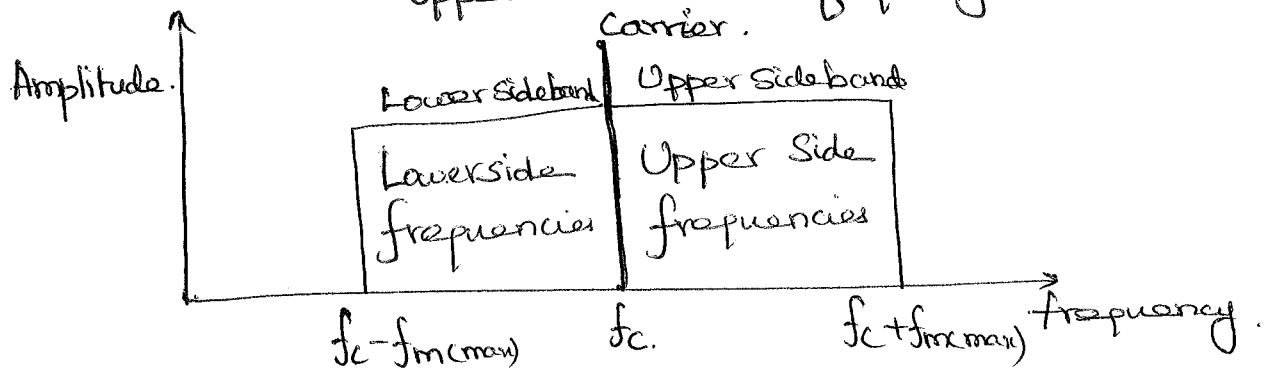 Carrier.
Amplitude.
Lower sideband Upper sideband
Lowerside Upper Side
frequencies frequencies
fc-fm(max) fc. fc+fm(max) frequency.